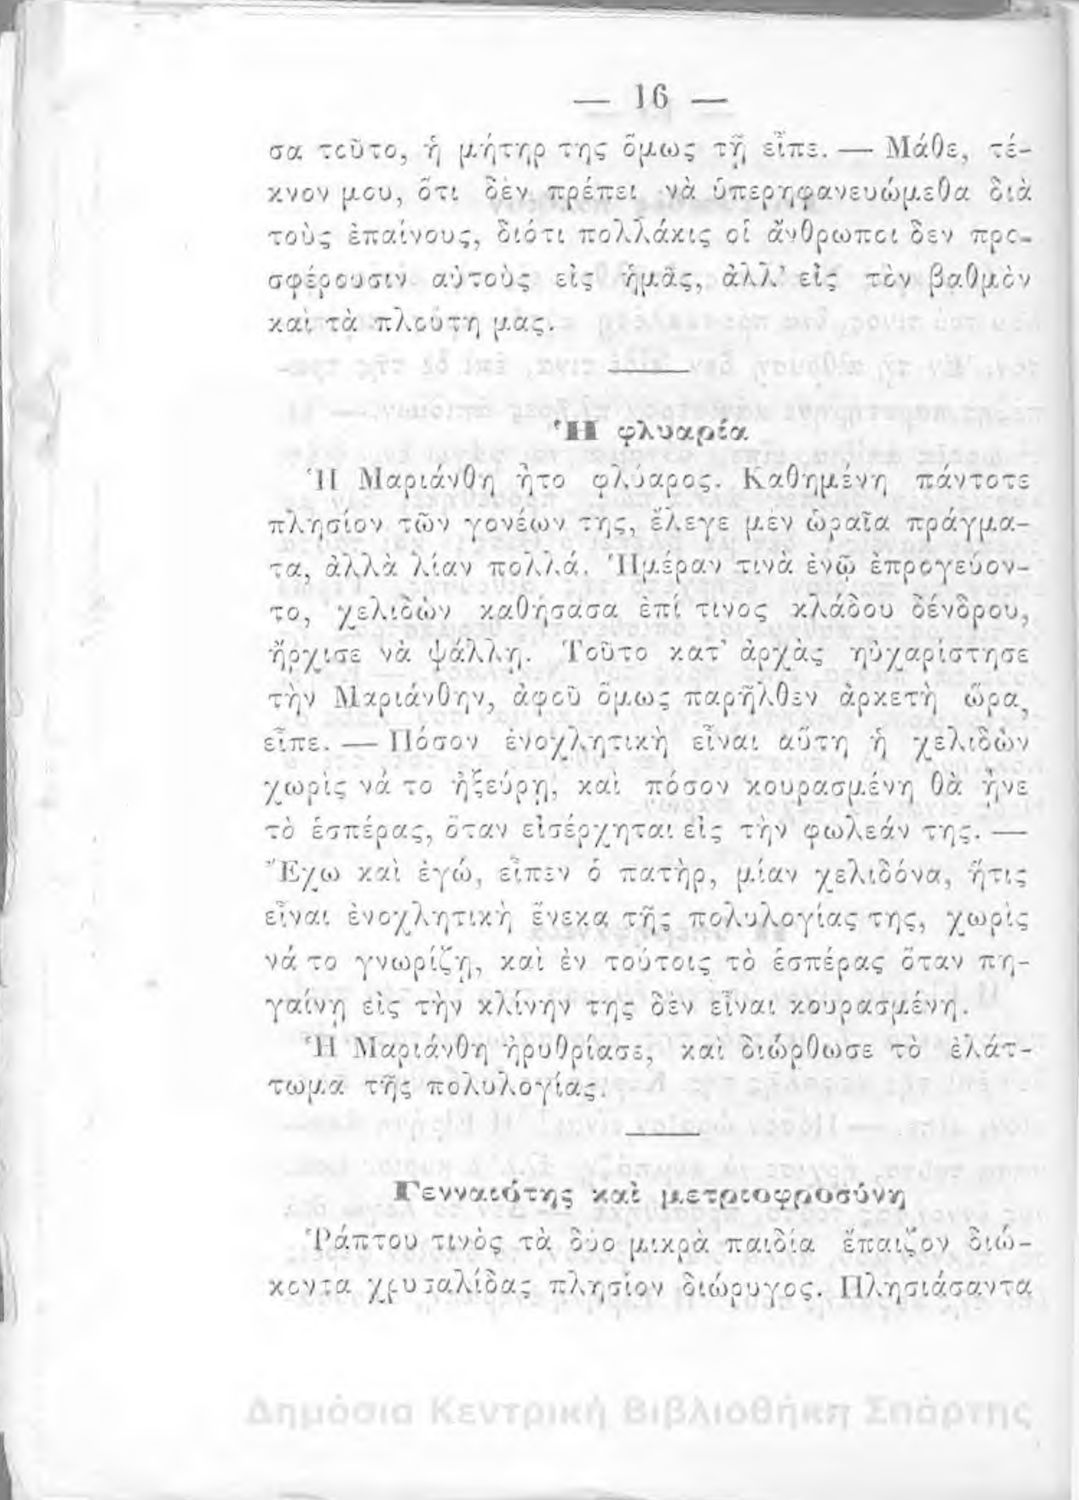 — 16 —
σα τοῦτο, ἡ μήτηρ της ὅμως τῇ εἶπε. — Μάθε, τέ-
κνον μου, ὅτι δὲν πρέπει νὰ ὑπερηφανευώμεθα διὰ
τοὺς ἐπαίνους, διότι πολλάκις οἱ ἄνθρωποι δὲν προ-
σφέρουσιν αὐτοὺς εἰς ἡμᾶς, ἀλλ' εἰς τὸν βαθμὸν
καὶ τὰ πλούτη μας.
Ἡ φλυαρία
Ἡ Μαριάνθη ἦτο φλύαρος. Καθημένη πάντοτε
πλησίον τῶν γονέων της, ἔλεγε μὲν ὡραῖα πράγμα-
τα, ἀλλὰ λίαν πολλά. Ἡμέραν τινὰ ἐνῷ ἐπρογεύον-
το, χελιδὼν καθήσασα ἐπί τινος κλάδου δένδρου,
ἤρχισε νὰ ψάλλῃ. Τοῦτο κατ' ἀρχὰς ηὐχαρίστησε
τὴν Μαριάνθην, ἀφοῦ ὅμως παρῆλθεν ἀρκετὴ ὥρα,
εἶπε. — Πόσον ἐνοχλητικὴ εἶναι αὕτη ἡ χελιδὼν
χωρὶς νά το ἠξεύρῃ, καὶ πόσον κουρασμένη θὰ ἦνε
τὸ ἑσπέρας, ὅταν εἰσέρχηται εἰς τὴν φωλεάν της. —
Ἔχω καὶ ἐγώ, εἶπεν ὁ πατὴρ, μίαν χελιδόνα, ἥτις
εἶναι ἐνοχλητικὴ ἕνεκα τῆς πολυλογίας της, χωρὶς
νά το γνωρίζῃ, καὶ ἐν τούτοις τὸ ἑσπέρας ὅταν πη-
γαίνῃ εἰς τὴν κλίνην της δὲν εἶναι κουρασμένη.
Ἡ Μαριάνθη ἠρυθρίασε, καὶ διώρθωσε τὸ ἐλάτ-
τωμα τῆς πολυλογίας.
Γενναιότης καὶ μετριοφροσύνη
Ῥάπτου τινὸς τὰ δύο μικρὰ παιδία ἔπαιζον διώ-
κοντα χρυσαλίδας πλησίον διώρυγος. Πλησιάσαντα
Δημόσια Κεντρική Βιβλιοθήκη Σπάρτης